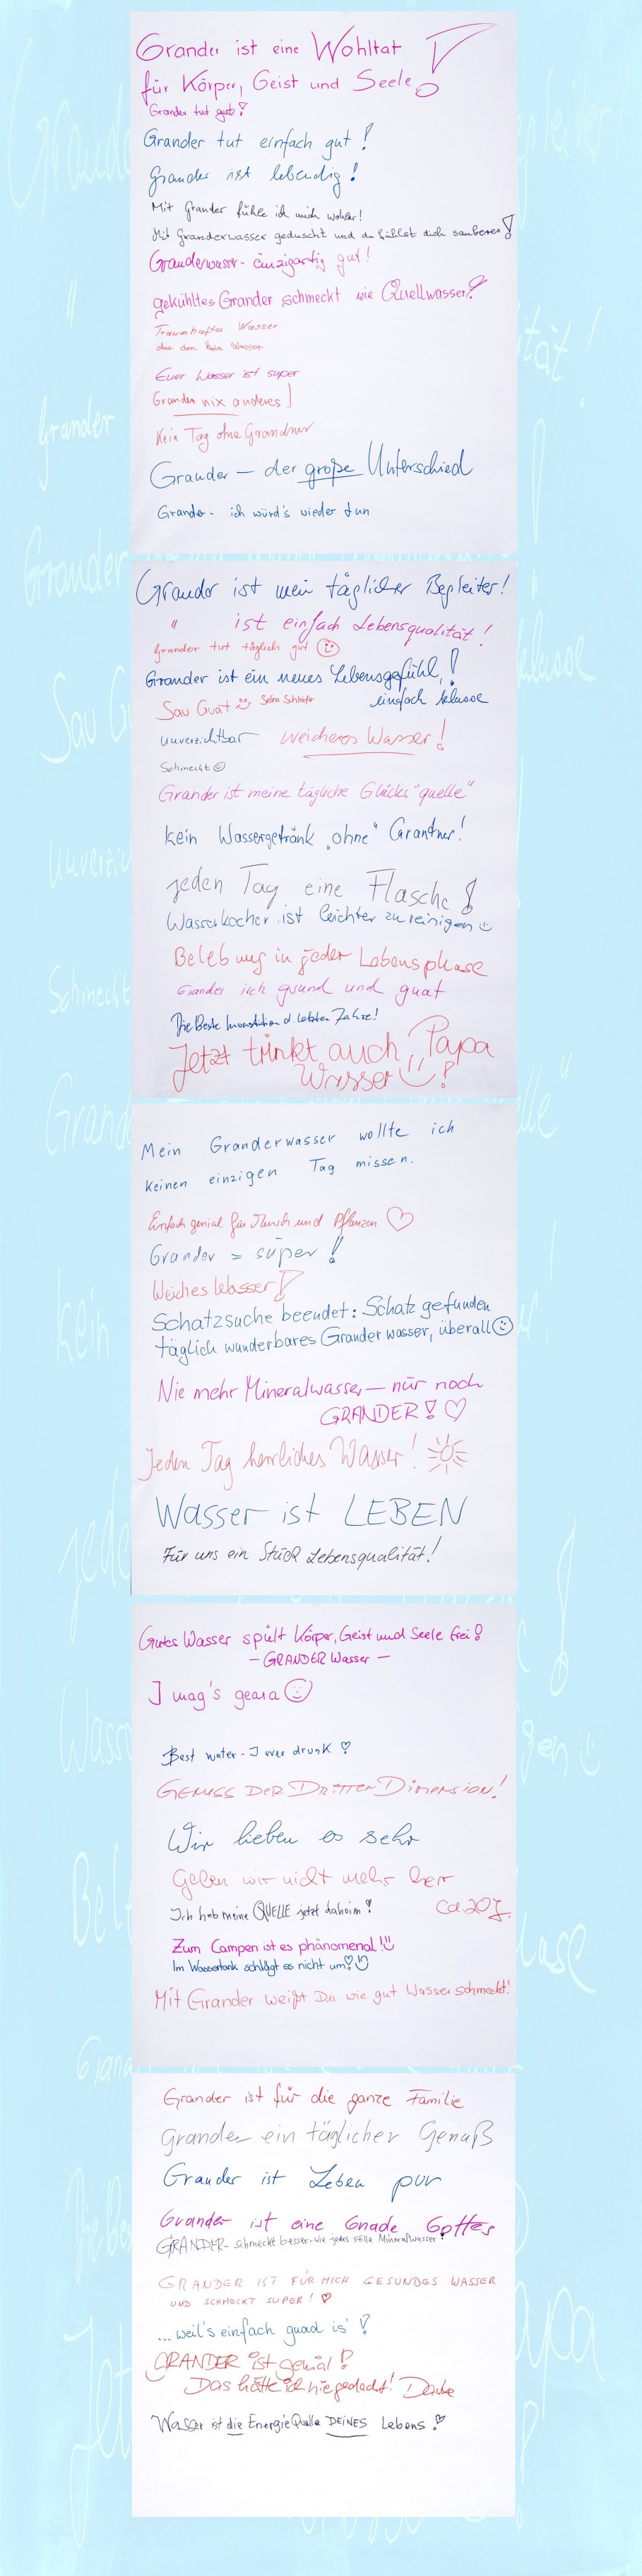 Grander ist eine Wohltat!
für Körper, Geist und Seele
Grander tut gut!
Grander tut einfach gut!
Grander ist lebendig!
Mit Grander fühle ich mich wohler!
Mit Granderwasser geduscht und du fühlst dich sauberer!
Granderwasser - einzigartig gut!
gekühltes Grander schmeckt wie Quellwasser!
Traumhaftes Wasser
ohne dem kein Wasser
Euer Wasser ist super
Grander nix anderes!
Kein Tag ohne Grandner
Grander — der große Unterschied
Grander - ich würd's wieder tun
Grander ist mein täglicher Begleiter!
" ist einfach Lebensqualität!
Grander tut täglich gut ☺
Grander ist ein neues Lebensgefühl!
einfach klasse
Sau Guat ☺
unverzichtbar weicheres Wasser!
Schmeckt ☺
Grander ist meine tägliche Glücks"quelle"
kein Wassergetränk „ohne" Grantner!
jeden Tag eine Flasche!
Wasserkocher ist leichter zu reinigen ☺
Belebung in jeder Lebensphase
Grander isch gsund und guat
Die Beste Investition d. letzten Jahre!
Jetzt trinkt auch Papa
Wasser ☺!
Mein Granderwasser wollte ich
keinen einzigen Tag missen.
Einfach genial für Mensch und Pflanzen ♡
Grander = super!
Weiches Wasser!
Schatzsuche beendet: Schatz gefunden
täglich wunderbares Granderwasser, überall ☺
Nie mehr Mineralwasser — nur noch
GRANDER! ♡
Jeden Tag herrliches Wasser! ☼
Wasser ist LEBEN
Für uns ein Stück Lebensqualität!
Gutes Wasser spült Körper, Geist und Seele frei!
— GRANDER Wasser —
I mag's geara ☺
Best water - I ever drunk ♡
GENUSS DER DRITTEN DIMENSION!
Wir lieben es sehr
Geben wir nicht mehr her
ca. 20 J.
Ich hab meine QUELLE jetzt daheim!
Zum Campen ist es phänomenal! ☺
Im Wassertank schlägt es nicht um! ☺
Mit Grander weißt Du wie gut Wasser schmeckt!
Grander ist für die ganze Familie
Grander ein täglicher Genuß
Grander ist Leben pur
Grander ist eine Gnade Gottes
GRANDER - schmeckt besser wie jedes stille Mineralwasser!
GRANDER IST FÜR MICH GESUNDES WASSER
UND SCHMECKT SUPER! ♡
...weil's einfach guad is'!
GRANDER ist genial!
Das hätte ich nie gedacht! Danke
Wasser ist die EnergieQuelle DEINES Lebens!♡